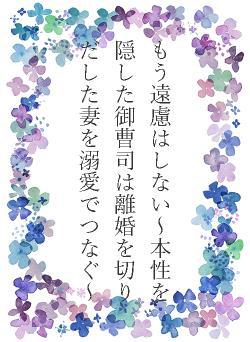 もう遠慮はしない～本性を
隠した御曹司は離婚を切り
だした妻を溺愛でつなぐ～